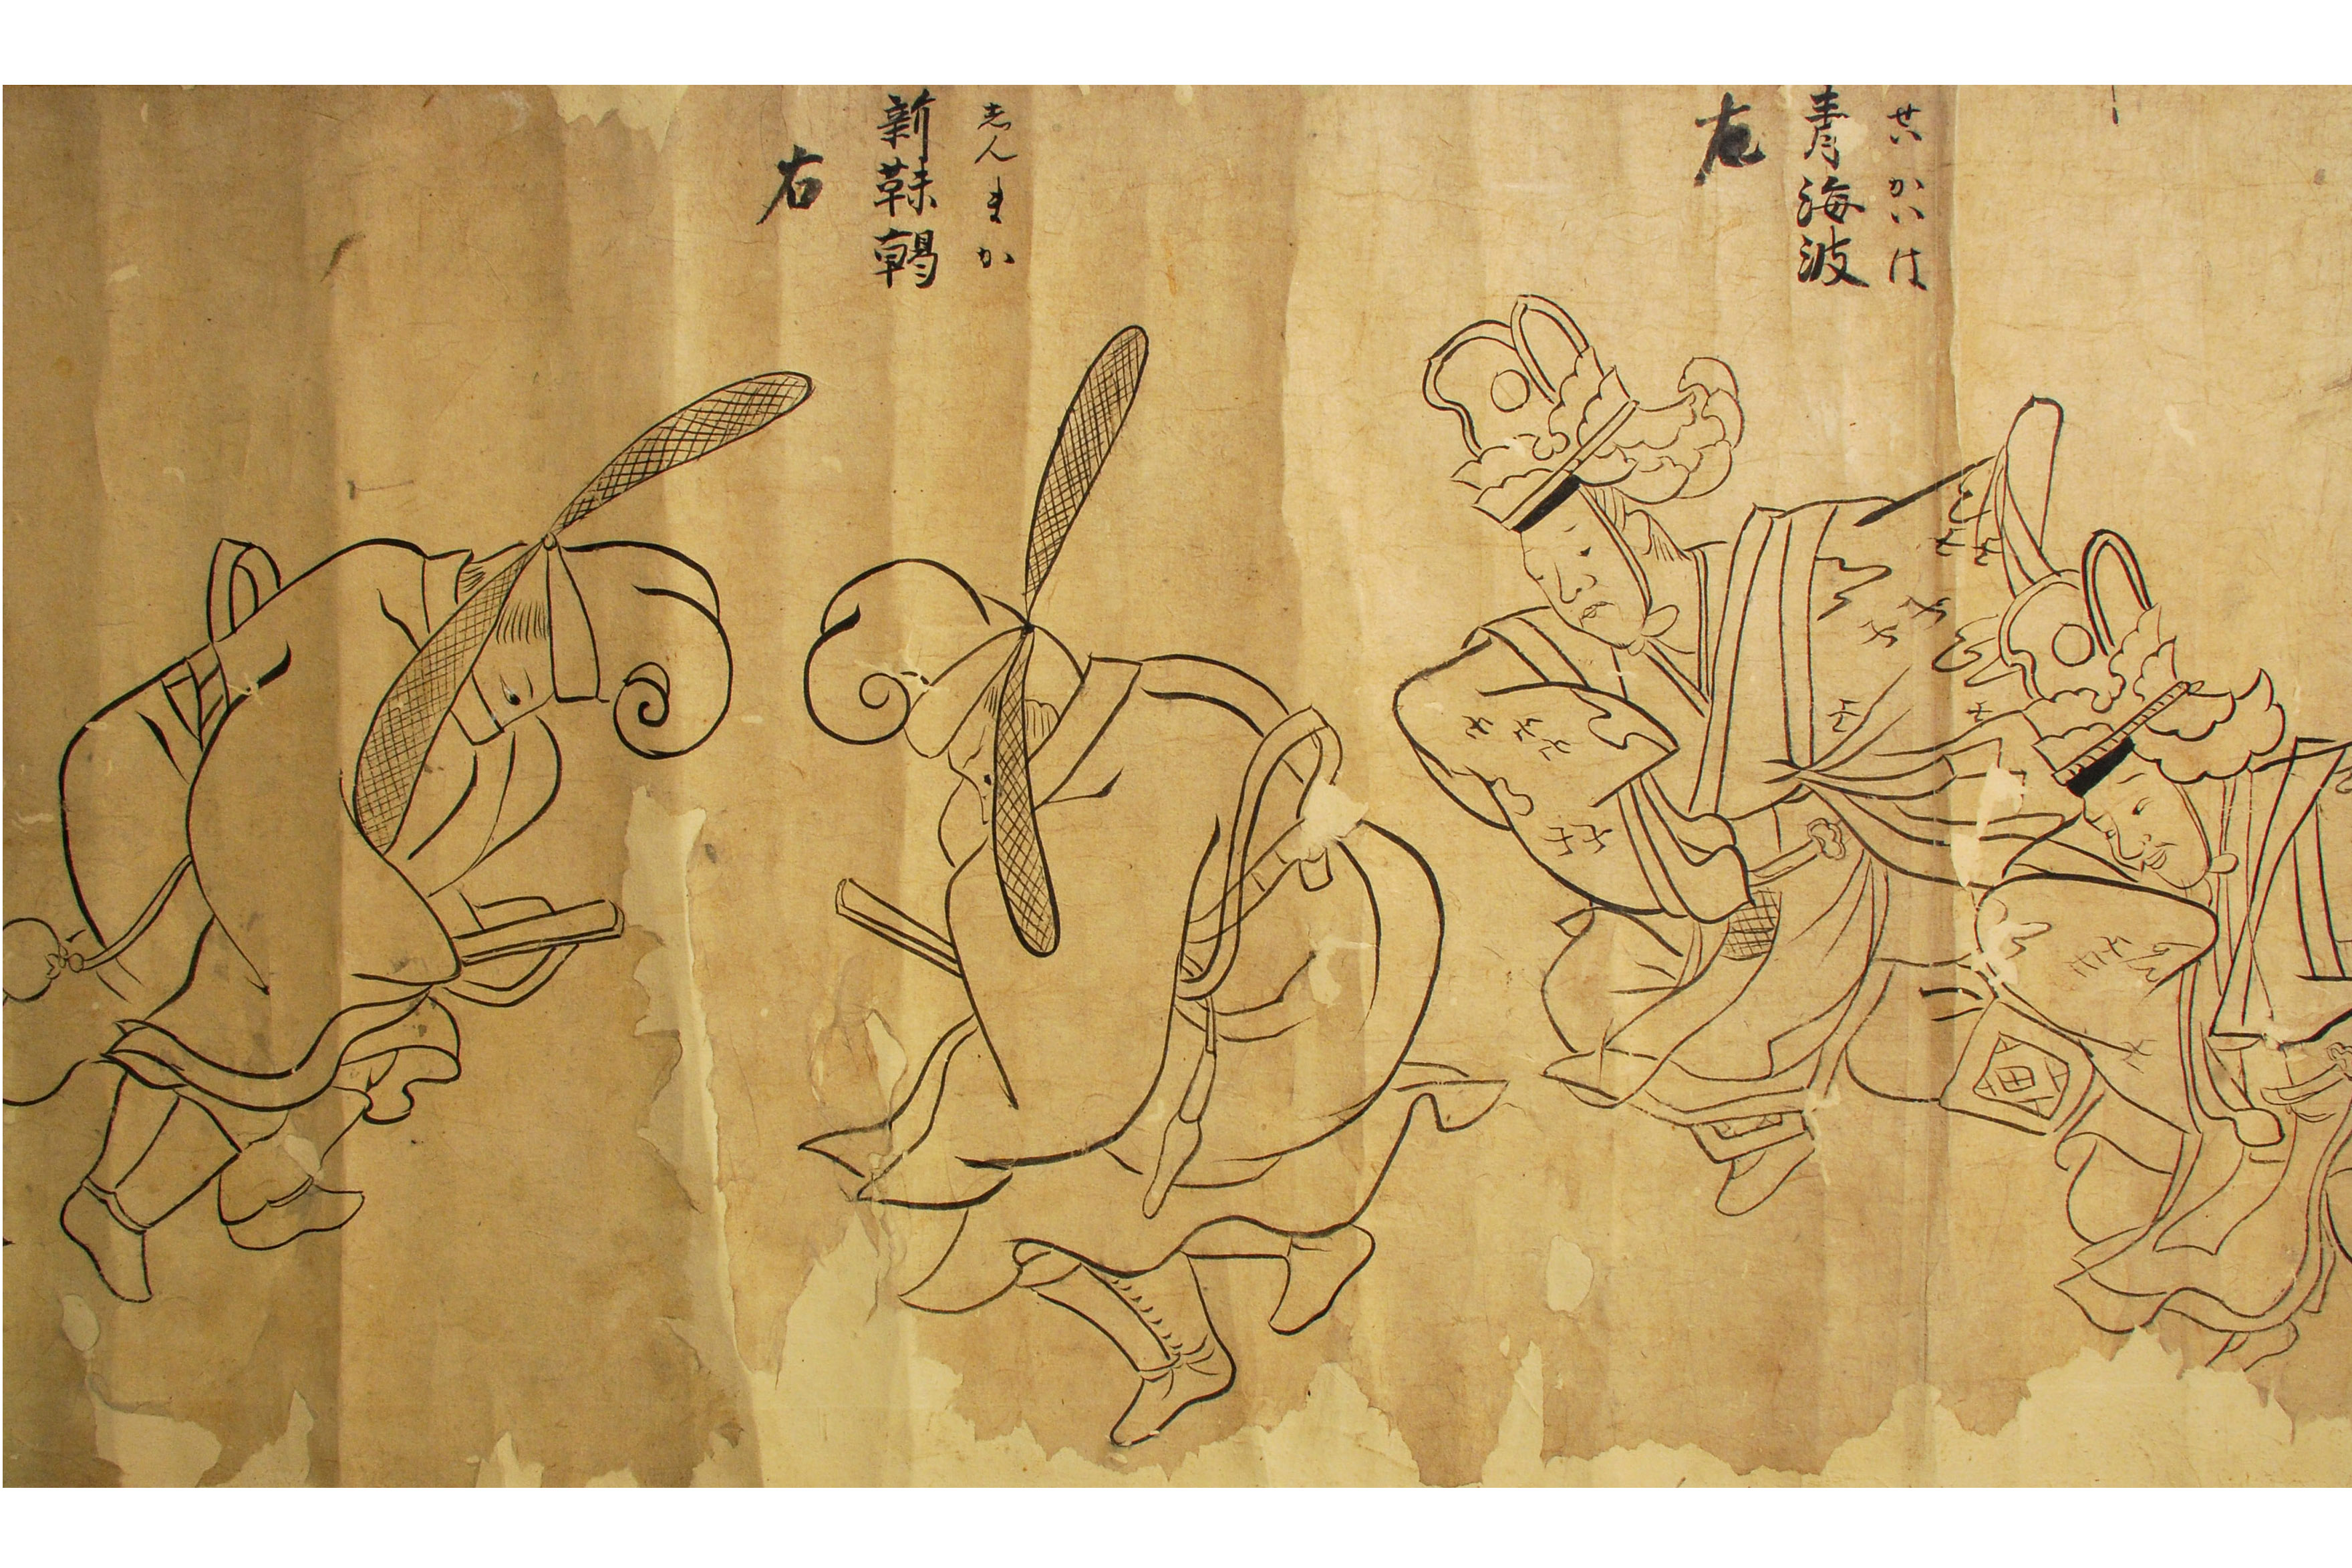 せいかいは
青海波
左
志んまか
新靺鞨
右